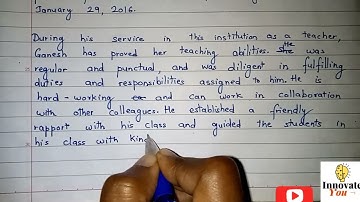 January 29, 2016.
During his service in this institution as a teacher,
Ganesh has proved her teaching abilities. She He was
regular and punctual, and was diligent in fulfilling
duties and responsibilities assigned to him. He is
hard-working and can work in collaboration
with other colleagues. He established a friendly
rapport with his class and guided the students in
his class with kin
Innovate
You